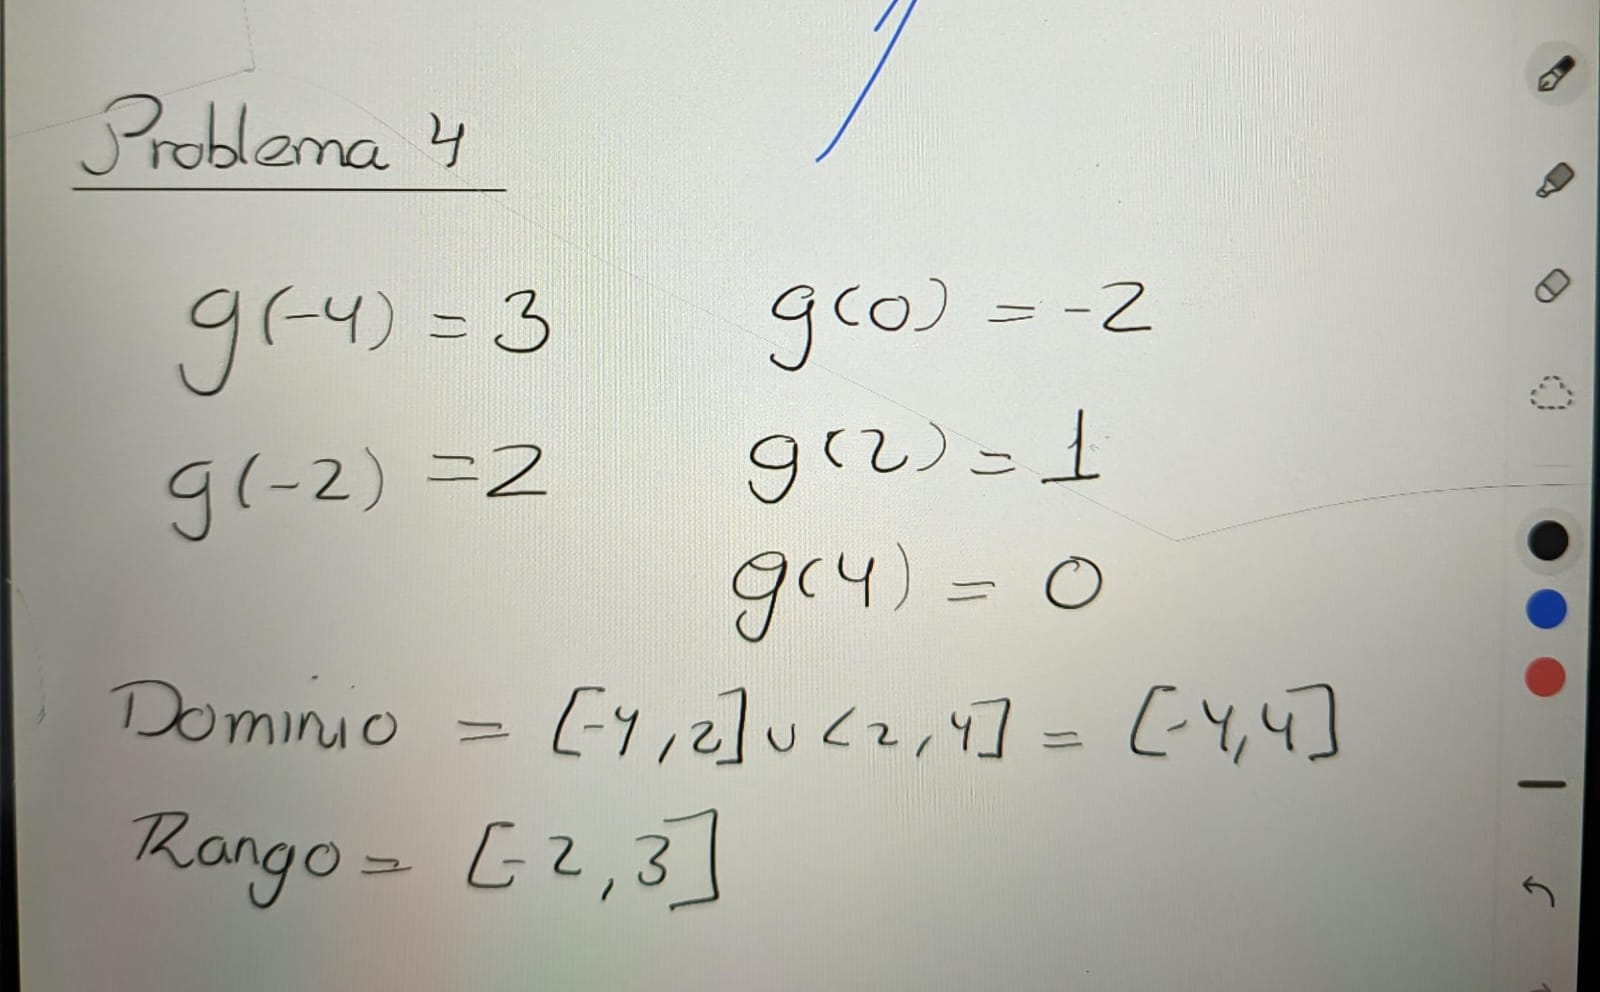 Problema 4
g(-4) = 3
g(0) = -2
g(-2) = 2
g(2) = 1
g(4) = 0
Dominio = [-4,2] ∪ <2,4] = [-4,4]
Rango = [-2,3]